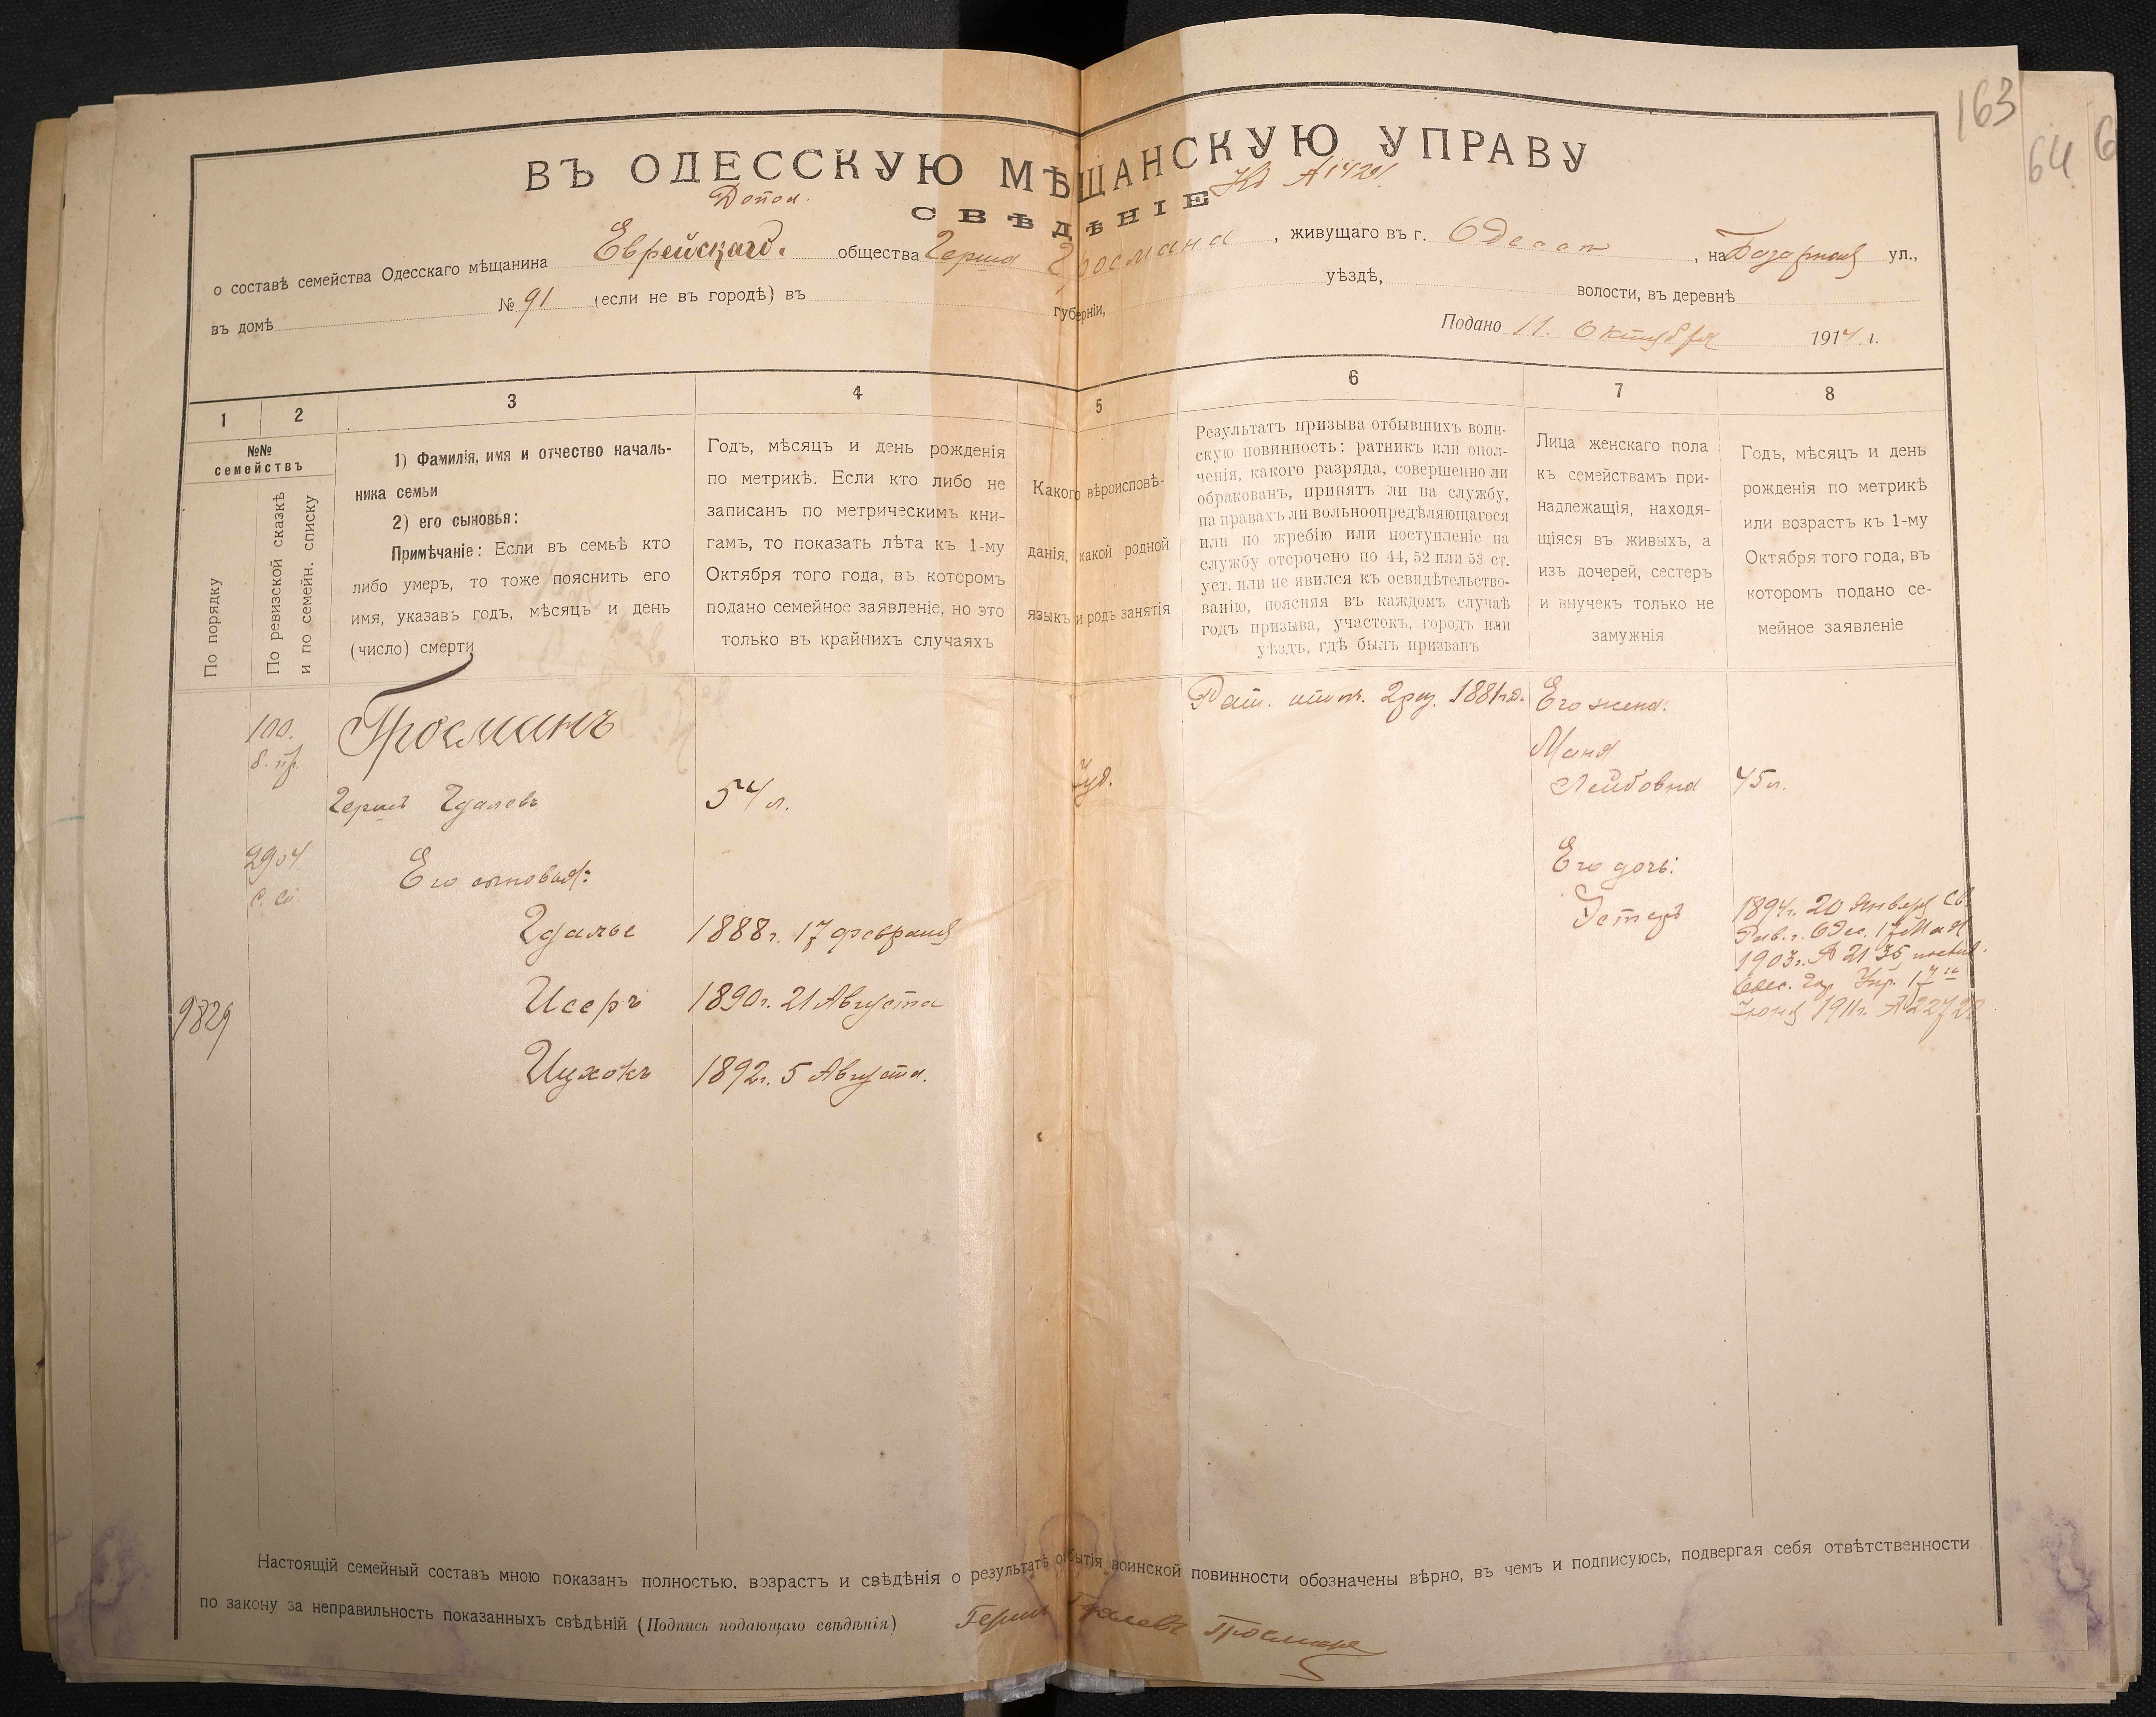 163
64
ВЪ ОДЕССКУЮ МѢЩАНСКУЮ УПРАВУ
СВѢДѢНІЕ
о составѣ семейства Одесскаго мѣщанина Еврейскаго общества Герша Гросмана, живущаго въ г. Одессѣ, на Базарной ул.,
въ домѣ № 91 (если не въ городѣ) въ губерніи, уѣздѣ, волости, въ деревнѣ
Подано 11. Октября 1914 г.
1
2
3
4
5
6
7
8
№№
семействъ
По порядку
По ревизской сказкѣ
и по семейн. списку
1) Фамилія, имя и отчество началь-
ника семьи
2) его сыновья:
Примѣчаніе: Если въ семьѣ кто
либо умеръ, то тоже пояснить его
имя, указавъ годъ, мѣсяцъ и день
(число) смерти
Годъ, мѣсяцъ и день рожденія
по метрикѣ. Если кто либо не
записанъ по метрическимъ кни-
гамъ, то показать лѣта къ 1-му
Октября того года, въ которомъ
подано семейное заявленіе, но это
только въ крайнихъ случаяхъ
Какого вѣроисповѣ-
данія, какой родной
языкъ и родъ занятія
Результатъ призыва отбывшихъ воин-
скую повинность: ратникъ или опол-
ченія, какого разряда, совершенно ли
обракованъ, принятъ ли на службу,
на правахъ ли вольноопредѣляющагося
или по жребію или поступленіе на
службу отсрочено по 44, 52 или 53 ст.
уст. или не явился къ освидѣтельство-
ванію, поясняя въ каждомъ случаѣ
годъ призыва, участокъ, городъ или
уѣздъ, гдѣ былъ призванъ
Лица женскаго пола
къ семействамъ при-
надлежащія, находя-
щіяся въ живыхъ, а
изъ дочерей, сестеръ
и внучекъ только не
замужнія
Годъ, мѣсяцъ и день
рожденія по метрикѣ
или возрастъ къ 1-му
Октября того года, въ
которомъ подано се-
мейное заявленіе
100.
2904
9829
Гросманъ
Гершъ Гдалевъ 54 л.
Его сыновья:
Гдалье 1888 г. 17 февраля
Исеръ 1890 г. 21 Августа
Ицхокъ 1892 г. 5 Августа.
Іуд.
Рат. 2 раз. 1881 го.
Его жена:
Маня
Лейбовна 45 л.
Его дочь:
Эстеръ
1894 г. 20 Января Св.
Рав. г. Одес. 17 Мая
1903 г. № 2135
Одес. Гор. Упр. 17
Іюня 1911 г. № 22728
Настоящій семейный составъ мною показанъ полностью, возрастъ и свѣдѣнія о результатѣ отбытія воинской повинности обозначены вѣрно, въ чемъ и подписуюсь, подвергая себя отвѣтственности
по закону за неправильность показанныхъ свѣдѣній (Подпись подающаго свѣдѣнія) Гершъ Гдалевъ Гросманъ